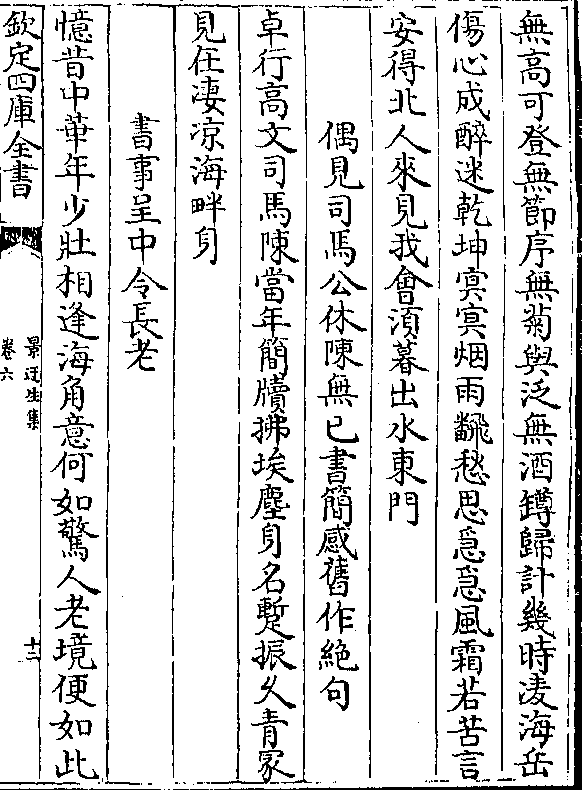 無高可登無節序無菊與泛無酒罇歸計幾時凌海岳
傷心成醉迷乾坤㝠㝠烟雨飜愁思急急風霜若苦言
安得北人來見我會須暮出水東門
偶見司馬公休陳無已書簡感舊作絶句
卓行高文司馬陳當年簡牘拂埃塵身名蹔振乆青冢
見在凄涼海畔身
書事呈中令長老
憶昔中華年少壯相逢海角意何如驚人老境便如此
欽定四庫全書
景迂生集
卷六
十三